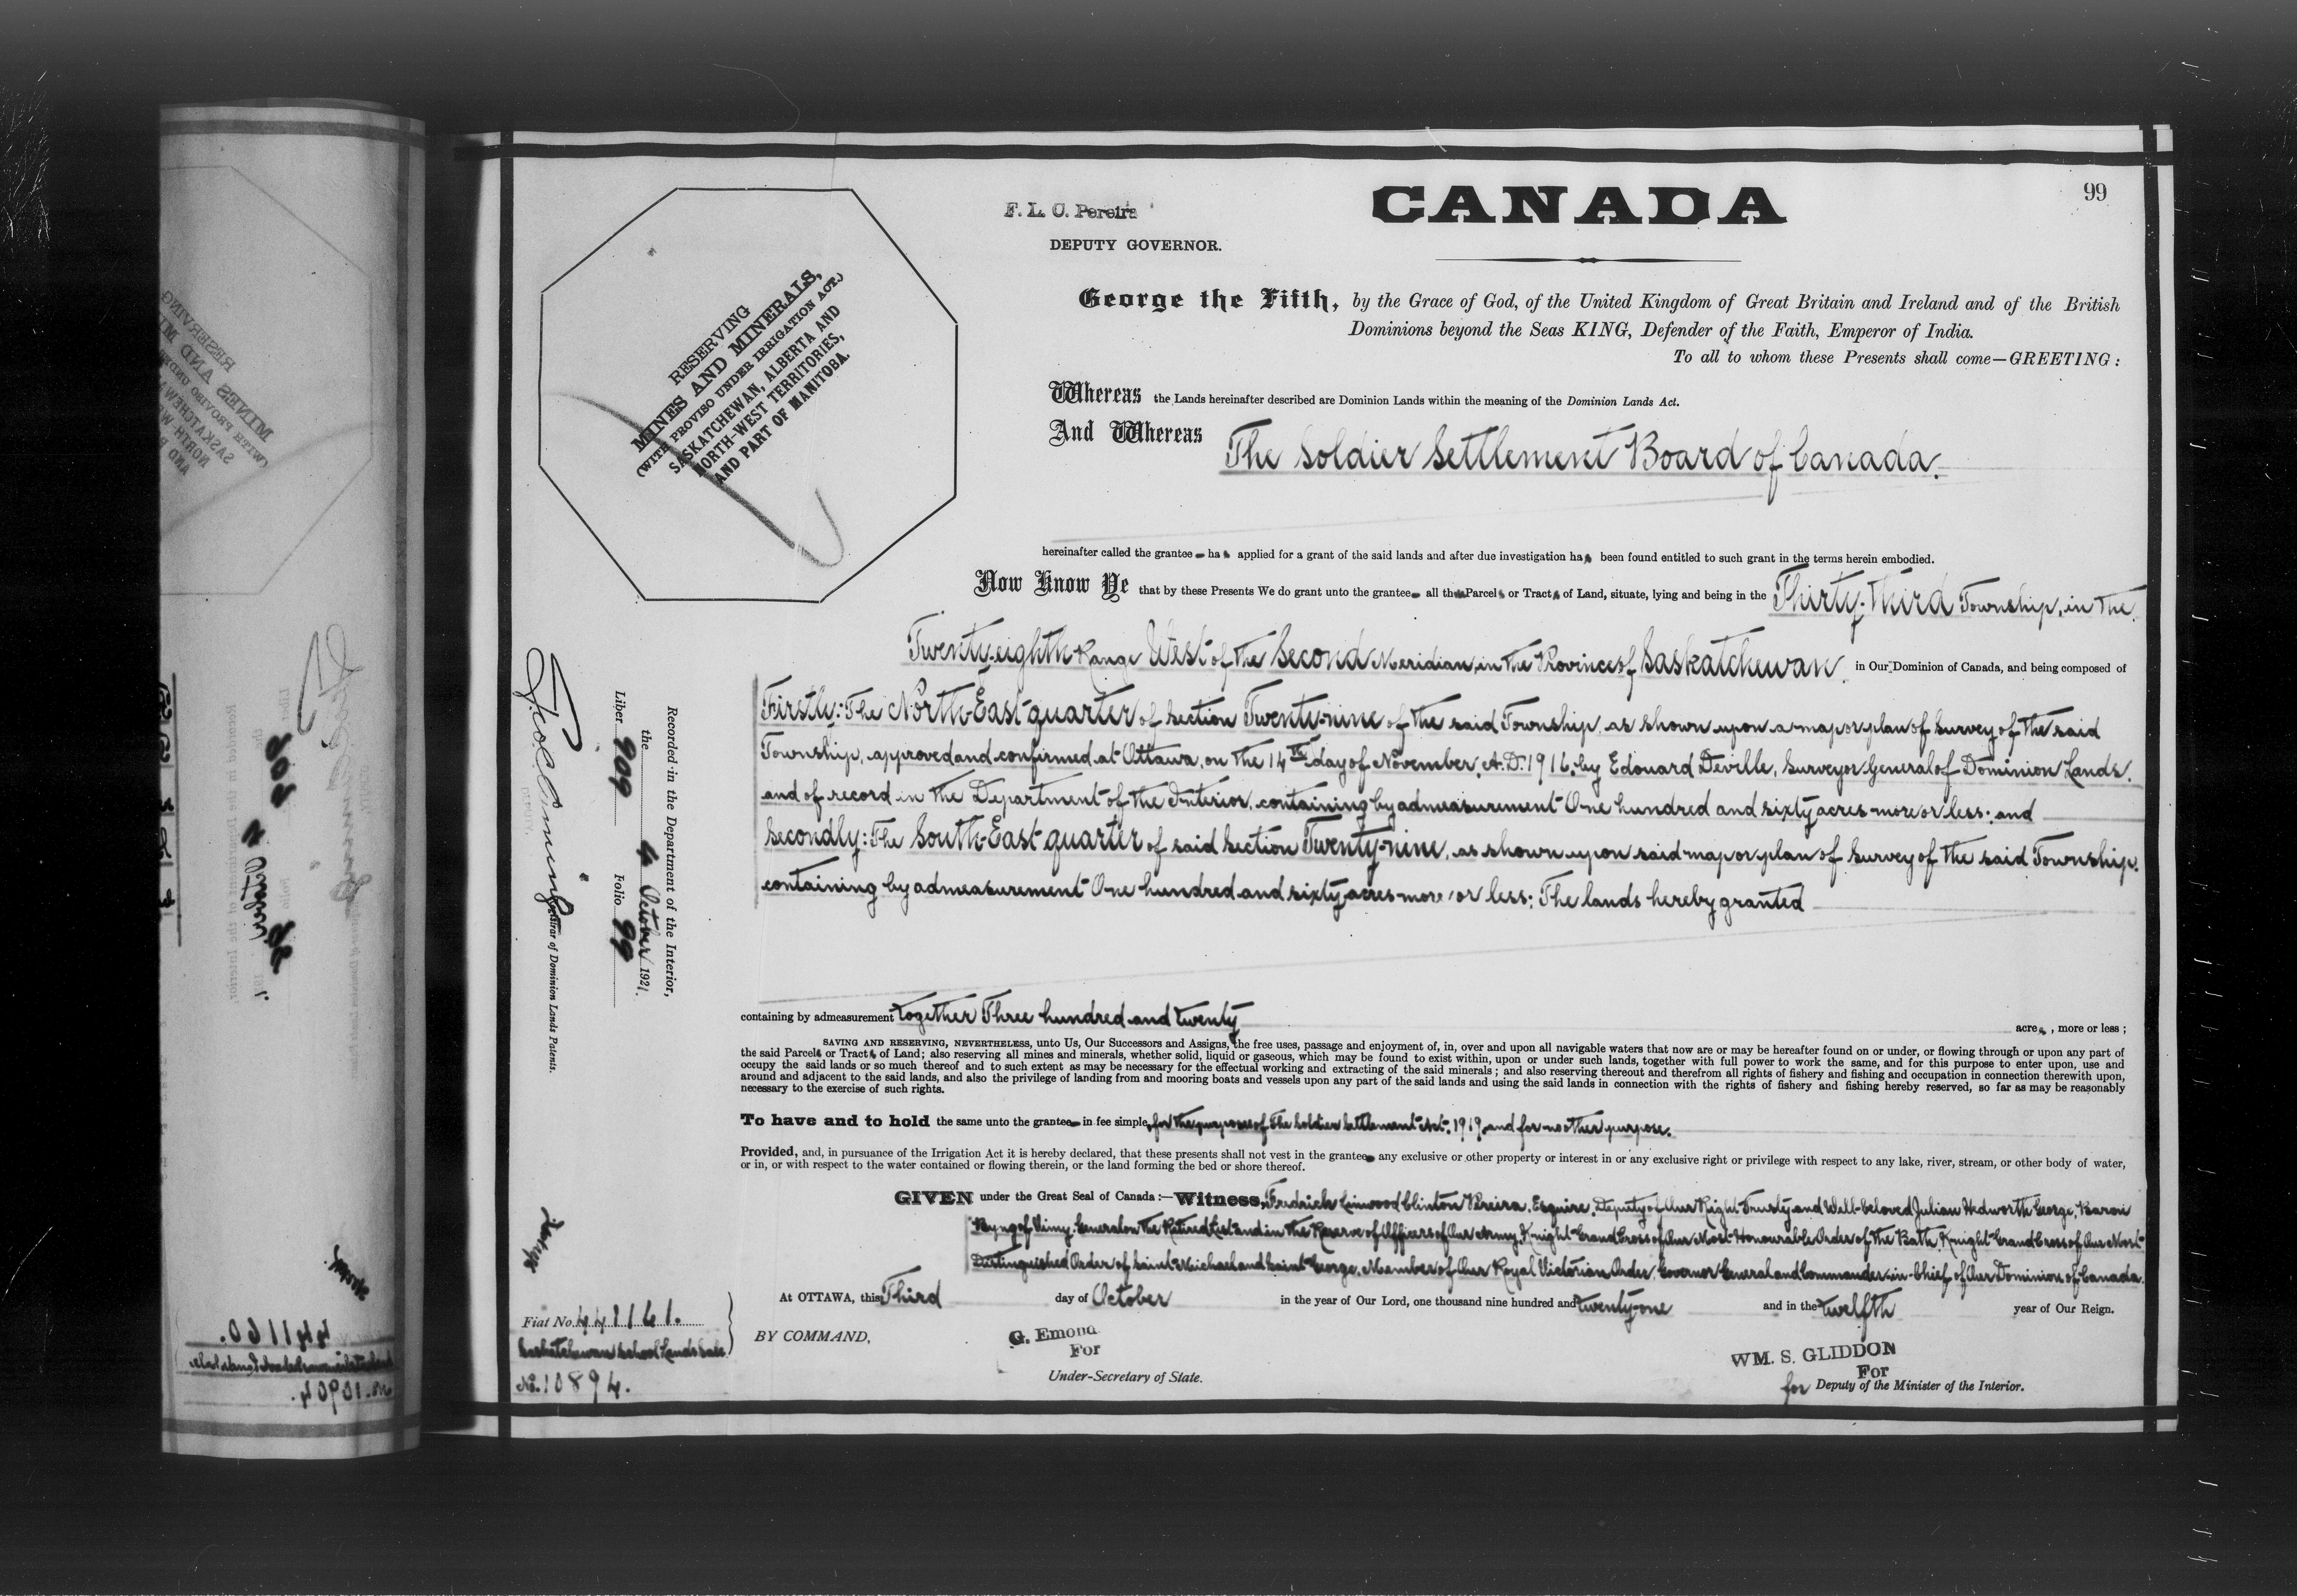 99
CANADA
F. L. C. Pereira
DEPUTY GOVERNOR.
RESERVING
MINES AND MINERALS,
(WITH PROVISO UNDER IRRIGATION ACT,)
SASKATCHEWAN, ALBERTA AND
NORTH-WEST TERRITORIES,
AND PART OF MANITOBA.
George the Fifth, by the Grace of God, of the United Kingdom of Great Britain and Ireland and of the British
Dominions beyond the Seas KING, Defender of the Faith, Emperor of India.
To all to whom these Presents shall come—GREETING:
Whereas the Lands hereinafter described are Dominion Lands within the meaning of the Dominion Lands Act.
And Whereas The Soldier Settlement Board of Canada.
hereinafter called the grantee has applied for a grant of the said lands and after due investigation has been found entitled to such grant in the terms herein embodied.
Now Know Ye that by these Presents We do grant unto the grantee all the Parcels or Tracts of Land, situate, lying and being in the Thirty-third Township, in the
Twenty-eighth Range West of the Second Meridian, in the Province of Saskatchewan, in Our Dominion of Canada, and being composed of
Firstly: The North-East quarter of Section Twenty-nine of the said Township, as shown upon a map or plan of survey of the said
Township, approved and confirmed at Ottawa, on the 14th day of November, A.D. 1916, by Edouard Deville, Surveyor General of Dominion Lands,
and of record in the Department of the Interior, containing by admeasurement One hundred and sixty acres more or less; and
Secondly: The South-East quarter of said Section Twenty-nine, as shown upon said map or plan of survey of the said Township,
containing by admeasurement One hundred and sixty acres more or less; The lands hereby granted
containing by admeasurement together Three hundred and twenty acres, more or less;
SAVING AND RESERVING, NEVERTHELESS, unto Us, Our Successors and Assigns, the free uses, passage and enjoyment of, in, over and upon all navigable waters that now are or may be hereafter found on or under, or flowing through or upon any part of
the said Parcels or Tracts of Land; also reserving all mines and minerals, whether solid, liquid or gaseous, which may be found to exist within, upon or under such lands, together with full power to work the same, and for this purpose to enter upon, use and
occupy the said lands or so much thereof and to such extent as may be necessary for the effectual working and extracting of the said minerals; and also reserving thereout and therefrom all rights of fishery and fishing and occupation in connection therewith upon,
around and adjacent to the said lands, and also the privilege of landing from and mooring boats and vessels upon any part of the said lands and using the said lands in connection with the rights of fishery and fishing hereby reserved, so far as may be reasonably
necessary to the exercise of such rights.
To have and to hold the same unto the grantee in fee simple, for the purposes of The Soldier Settlement Act, 1919, and for no other purpose.
Provided, and, in pursuance of the Irrigation Act it is hereby declared, that these presents shall not vest in the grantee any exclusive or other property or interest in or any exclusive right or privilege with respect to any lake, river, stream, or other body of water,
or in, or with respect to the water contained or flowing therein, or the land forming the bed or shore thereof.
GIVEN under the Great Seal of Canada:—Witness, Fredrick Linwood Clinton Pereira, Esquire, Deputy of Our Right Trusty and Well-beloved Julian Hedworth George, Baron
Byng of Vimy, General on the Retired List and in the Reserve of Officers of Our Army, Knight Grand Cross of Our Most Honourable Order of the Bath, Knight Grand Cross of Our Most
Distinguished Order of Saint Michael and Saint George, Member of Our Royal Victorian Order, Governor General and Commander-in-Chief of Our Dominion of Canada.
At OTTAWA, this Third day of October in the year of Our Lord, one thousand nine hundred and twenty-one and in the twelfth year of Our Reign.
BY COMMAND,
G. Emond
For
Under-Secretary of State.
WM. S. GLIDDON
For
for Deputy of the Minister of the Interior.
Recorded in the Department of the Interior,
the 4 October 1921.
Liber 909 Folio 99
Registrar of Dominion Lands Patents.
Fiat No. 441161.
Saskatchewan School Lands Sale
No. 10894.